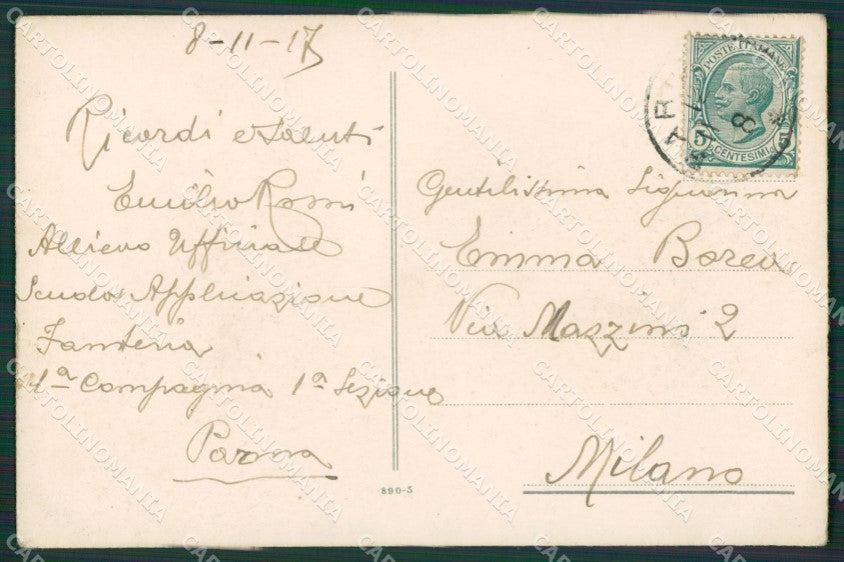 8-11-17
Ricordi e saluti
Emilio Rossi
Allievo Ufficiale
Scuola Applicazione
Fanteria
1ª Compagnia 1ª Sezione
Parma
890-5
POSTE ITALIANE
5 CENTESIMI 5
Gentilissima Signorina
Emma
Via Mazzini 2
Milano
CARTOLINOMANIA